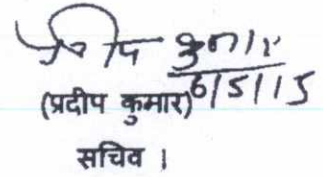 प्रदीप कुमार
6/5/15
(प्रदीप कुमार)
सचिव ।